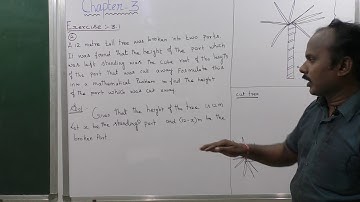 Chapter-3
Exercise :- 3.1
②
A 12 metre tall tree was broken into two parts.
It was found that the height of the part which
was left standing was the cube root of the length
of the part that was cut away. Formulate this
into a mathematical Problem to find the height
of the part which was cut away.
Given that the height of the tree is 12m
Let x be the standing part and (12-x)m be the
broken Part.
cut tree